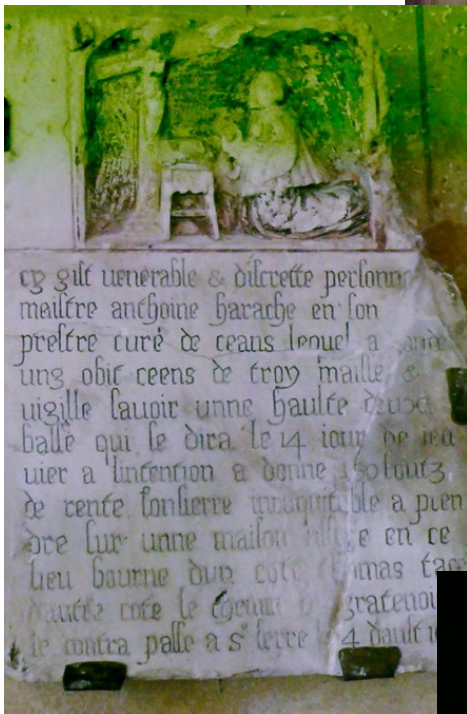 cy gist uenerable & discrette personn
meistre anthoine harache en son
prestre curé de ceans lequel a
ung obit ceens de troy maisse &
uigille sauoir unne haulte deux
basse qui se dira le 14 iour de
uier a lintention a donne 150 soutz
de rente fonsierre inaquitable a pren
dre sur unne maison en ce
lieu bourne dun coté tac
dautre coté le chemin gratenou
le contra passe a st leyre 4 dault